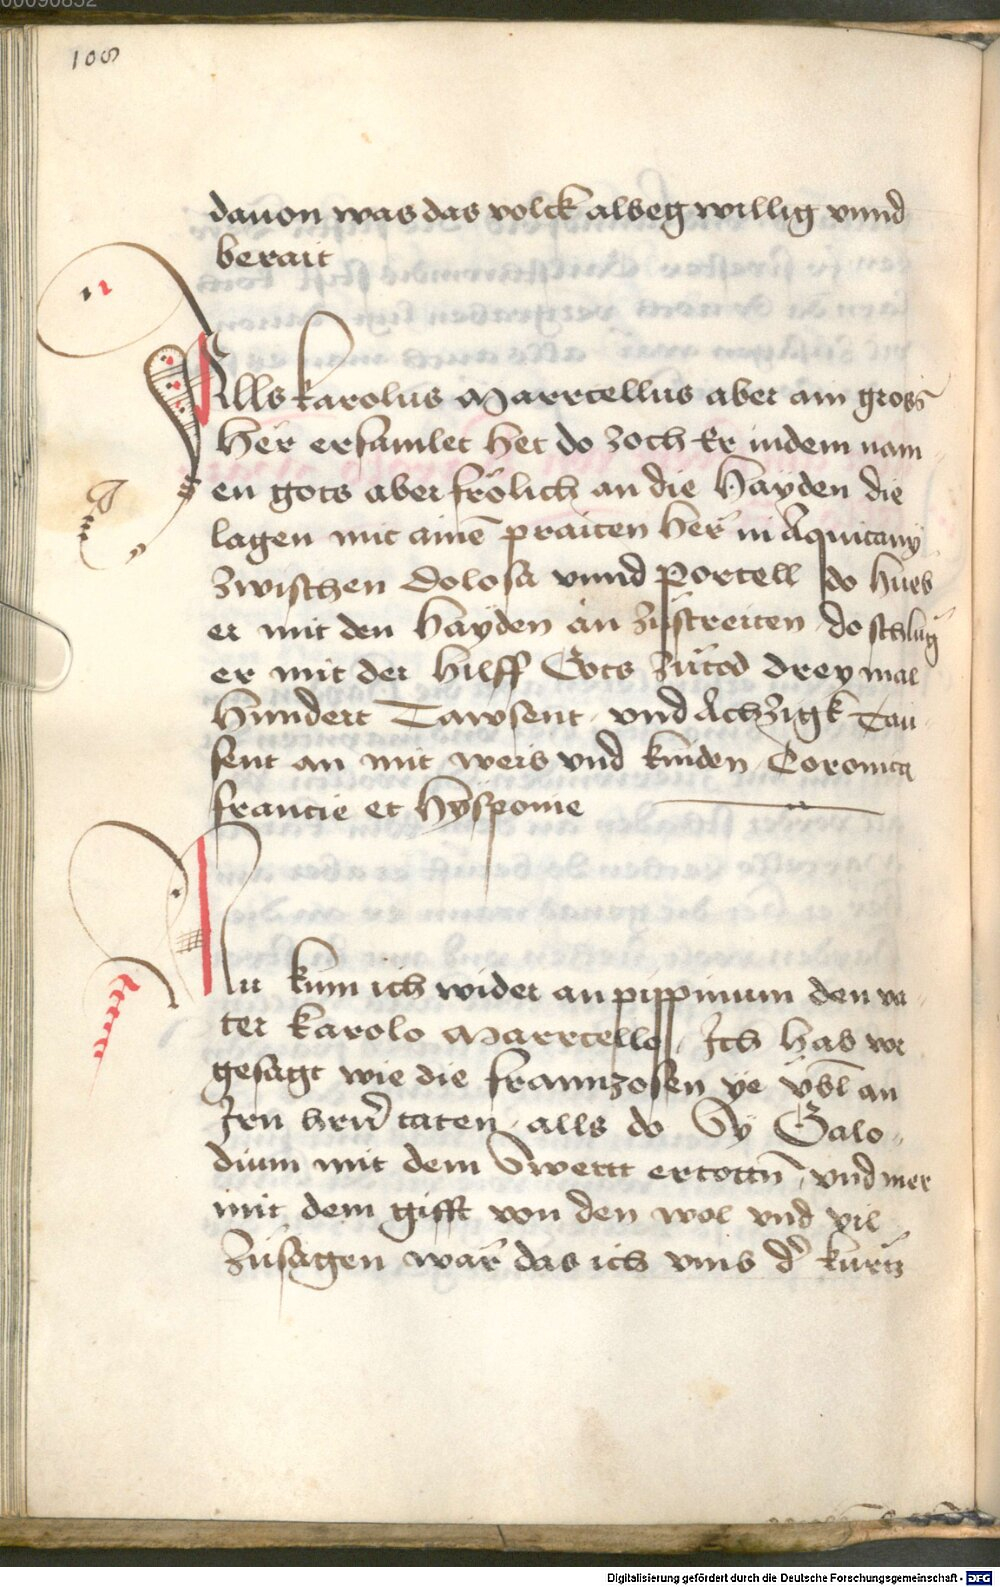 00090852
106
dauon was das volck alweg willig vnnd
berait
Alls karolus Marrcellus aber ain gross
Her ersamlet het do zoch Er indem nam
en gots aber frölich an die Hayden die
lagen mit ainē praiten Her in Aquitany
zwischen Dolosa vnnd Portell do hueb
er mit den Hayden an züstreiten do schlug
er mit der Hilff Gots zütod drey mal
Hundert Tawsent vnd Achzigk Tau
sent an mit weib vnd kinden Coronica
francie et Hysponie
Nu kum ich wider an pippinum den va
ter karolo Marrcello Ich hab vor
gesagt wie die frannzosen ye vbl an
Iren herrn taten alls do Sy Galo
dium mit dem Swertt ertottn vnd mer
mit dem gifft von den wol vnd vil
züsagen wär das ich vmb d kurtz
Digitalisierung gefördert durch die Deutsche Forschungsgemeinschaft - DFG